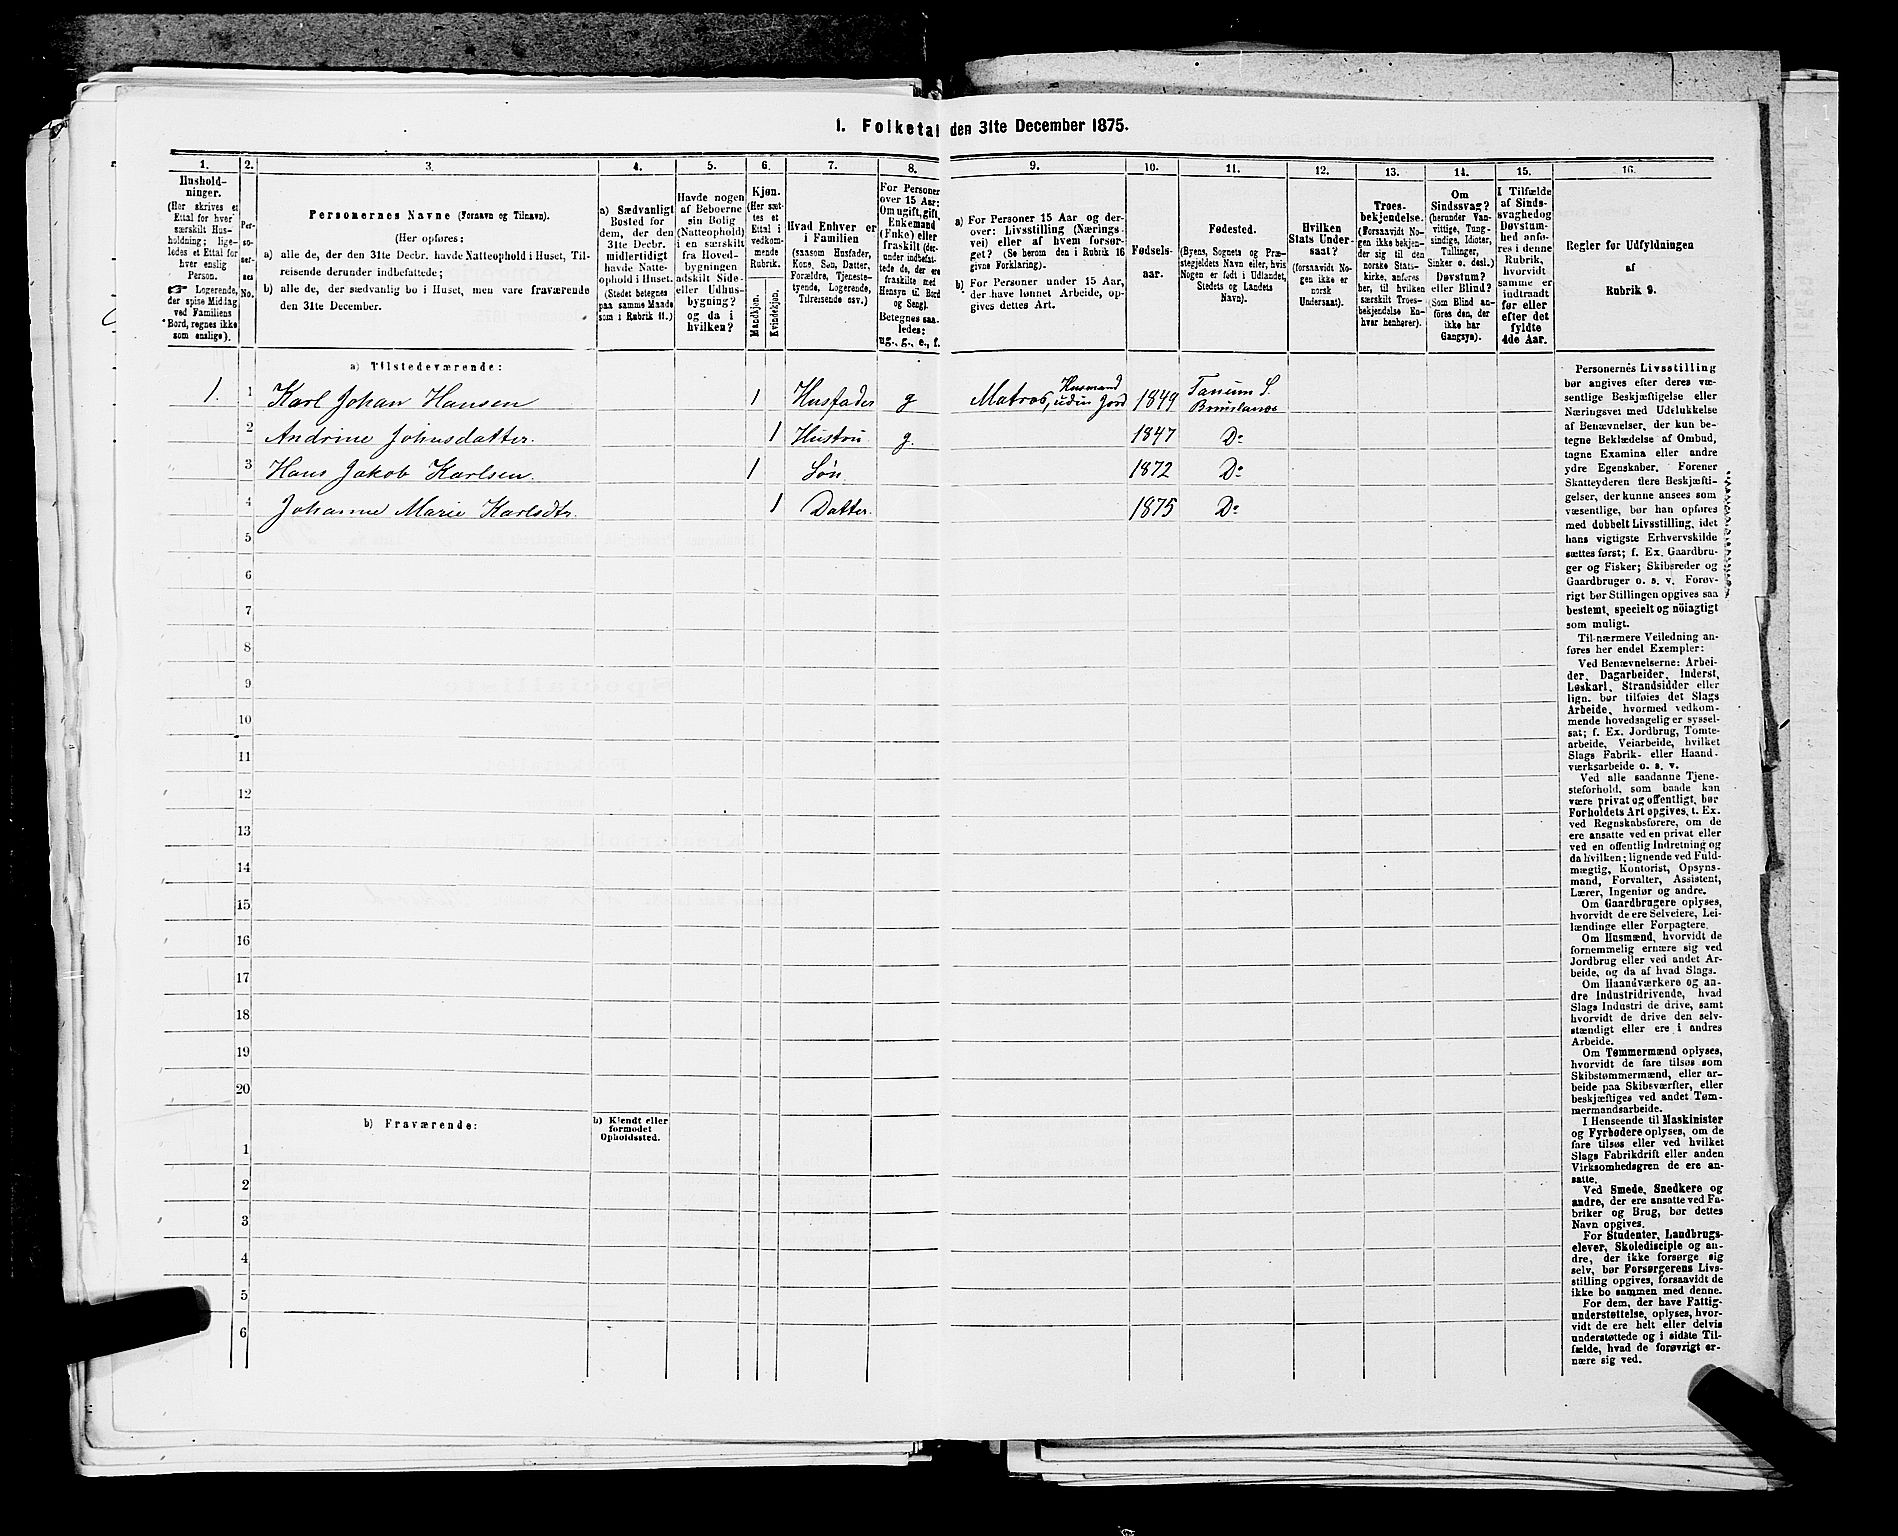 1. Folketal den 31te December 1875.
1.
Hushold-
ninger.
(Her skrives et
Ettal for hver
særskilt Hus-
holdning; lige-
ledes et Ettal for
hver enslig
Person.
☞ Logerende,
der spise Middag
ved Familiens
Bord, regnes ikke
som enslige).
2.
Per-
so-
ner-
nes
No.
3.
Personernes Navne (Fornavn og Tilnavn).
(Her opføres:
a) alle de, der den 31te Decbr. havde Natteophold i Huset, Til-
reisende derunder indbefattede;
b) alle de, der sædvanlig bo i Huset, men vare fraværende
den 31te December.
4.
a) Sædvanligt
Bosted for
dem, der den
31te Decbr.
midlertidigt
havde Natte-
ophold i Huset.
(Stedet betegnes
paa samme Maade
som i Rubrik 11.)
5.
Havde nogen
af Beboerne
sin Bolig
(Natteophold)
i en særskilt
fra Hoved-
bygningen
adskilt Side-
eller Udhus-
bygning?
og da i
hvilken?
6.
Kjøn.
(Her sæt-
tes et
Ettal i
vedkom-
mende
Rubrik.
Mandkjøn.
Kvindekjøn.
7.
Hvad Enhver er
i Familien
(saasom Husfader,
Kone, Søn, Datter,
Forældre, Tjeneste-
tyende, Logerende,
Tilreisende osv.)
8.
For Personer
over 15 Aar:
Om ugift, gift,
Enkemand
(Enke) eller
fraskilt (der-
under indbefat-
tede de, der ere
fraskilte med
Hensyn til Bord
og Seng).
Betegnes saa-
ledes:
ug., g., e., f.
9.
a) For Personer 15 Aar og der-
over: Livsstilling (Nærings-
vei) eller af hvem forsør-
get? (Se herom den i Rubrik 16
givne Forklaring).
b) For Personer under 15 Aar,
der have lønnet Arbeide, op-
gives dettes Art.
10.
Fødsels-
aar.
11.
Fødested.
(Byens, Sognets og Præ-
stegjeldets Navn eller, hvis
Nogen er født i Udlandet,
Stedets og Landets
Navn).
12.
Hvilken
Stats Under-
saat?
(forsaavidt No-
gen ikke er
norsk
Undersaat).
13.
Troes-
bekjendelse.
(Forsaavidt No-
gen ikke bekjen-
der sig til den
norske Stats-
kirke, anføres
her, til hvilken
særskilt Troes-
bekjendelse En-
hver henhører).
14.
Om
Sindssvag?
(herunder Van-
vittige, Tung-
sindige, Idioter,
Tullinger,
Sinker o. desl.)
Døvstum?
eller Blind?
(Som Blind an-
føres den, der
ikke har
Gangsyn).
15.
I Tilfælde
af Sinds-
svaghed og
Døvstum-
hed anfø-
res i denne
Rubrik,
hvorvidt
samme er
indtraadt
før eller
efter det
fyldte
4de Aar.
16.
Regler for Udfyldningen
af
Rubrik 9.
a) Tilstedeværende:
1. 1 Karl Johan Hansen 1 Husfader g Matros, Husmand uden Jord 1849 Tanum S. Brunlanæs
2 Andrine Johnsdatter. 1 Hustru g. 1847 Do
3 Hans Jakob Karlsen. 1 Søn. 1872 Do
4 Johanne Marie Karlsdtr. 1 Datter. 1875 Do
5
6
7
8
9
10
11
12
13
14
15
16
17
18
19
20
b) Fraværende:
b) Kjendt eller
formodet
Opholdssted.
1
2
3
4
5
6
Personernes Livsstilling
bør angives efter deres væ-
sentlige Beskjæftigelse eller
Næringsvei med Udelukkelse
af Benævnelser, der kun be-
tegne Beklædelse af Ombud,
tagne Examina eller andre
ydre Egenskaber. Forener
Skatteyderen flere Beskjæfti-
gelser, der kunne ansees som
væsentlige, bør han opføres
med dobbelt Livsstilling, idet
hans vigtigste Erhvervskilde
sættes først; f. Ex. Gaardbru-
ger og Fisker; Skibsreder og
Gaardbruger o. s. v. Forøv-
rigt bør Stillingen opgives saa
bestemt, specielt og nöiagtigt
som muligt.
Til nærmere Veiledning an-
føres her endel Exempler:
Ved Benævnelserne: Arbei-
der, Dagarbeider, Inderst,
Løskarl, Strandsidder eller
lign. bør tilføies det Slags
Arbeide, hvormed vedkom-
mende hovedsagelig er syssel-
sat; f. Ex. Jordbrug, Tomte-
arbeide, Veiarbeide, hvilket
Slags Fabrik- eller Haand-
værksarbeide o. s. v.
Ved alle saadanne Tjene-
steforhold, som baade kan
være privat og offentligt, bør
Forholdets Art opgives, t. Ex.
ved Regnskabsførere, om de
ere ansatte ved en privat eller
ved en offentlig Indretning og
da hvilken; lignende ved Fuld-
mægtig, Kontorist, Opsyns-
mand, Forvalter, Assistent,
Lærer, Ingeniør og andre.
Om Gaardbrugere oplyses,
hvorvidt de ere Selveiere, Lei-
lændinge eller Forpagtere.
Om Husmænd, hvorvidt de
fornemmelig ernære sig ved
Jordbrug eller ved andet Ar-
beide, og da af hvad Slags.
Om Haandværkere og an-
dre Industridrivende, hvad
Slags Industri de drive, samt
hvorvidt de drive den selv-
stændigt eller ere i andres
Arbeide.
Om Tømmermænd oplyses,
hvorvidt de fare tilsøs som
Skibstømmermænd, eller ar-
beide paa Skibsværfter, eller
beskjæftiges ved andet Tøm-
mermandsarbeide.
I Henseende til Maskinister
og Fyrbødere oplyses, om de
fare tilsøs eller ved hvilket
Slags Fabrikdrift eller anden
Virksomhedsgren de ere an-
satte.
Ved Smede, Snedkere og
andre, der ere ansatte ved Fa-
briker og Brug, bør dettes
Navn opgives.
For Studenter, Landbrugs-
elever, Skoledisciple og an-
dre, der ikke forsørge sig
selv, bør Forsørgerens Livs-
stilling opgives, forsaavidt de
ikke bo sammen med denne.
For dem, der have Fattig-
understøttelse, oplyses, hvor-
vidt de ere helt eller delvis
understøttede og i sidste Til-
fælde, hvad de forøvrigt er-
nære sig ved.